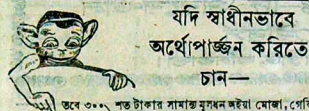 যদি স্বাধীনভাবে
অর্থোপার্জ্জন করিতে
চান—
তবে ৩০০৲ শত টাকার সামান্য মূলধন লইয়া মোজা, গেঞ্জি